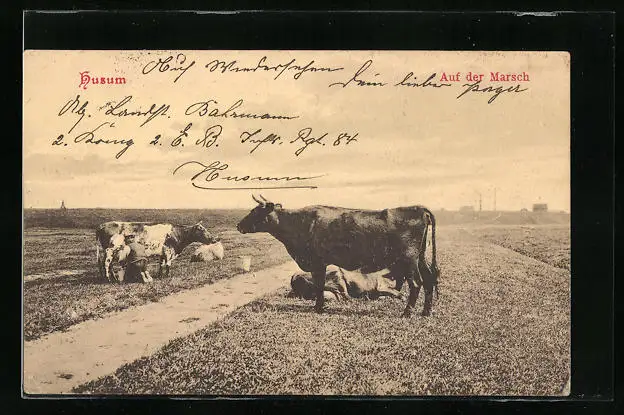 Husum
Auf der Marsch
Auf Wiedersehen
dein lieber
Abs. Landst. Bahrmann
2. Komp. 2. E. B. Inft. Rgt. 84
Husum